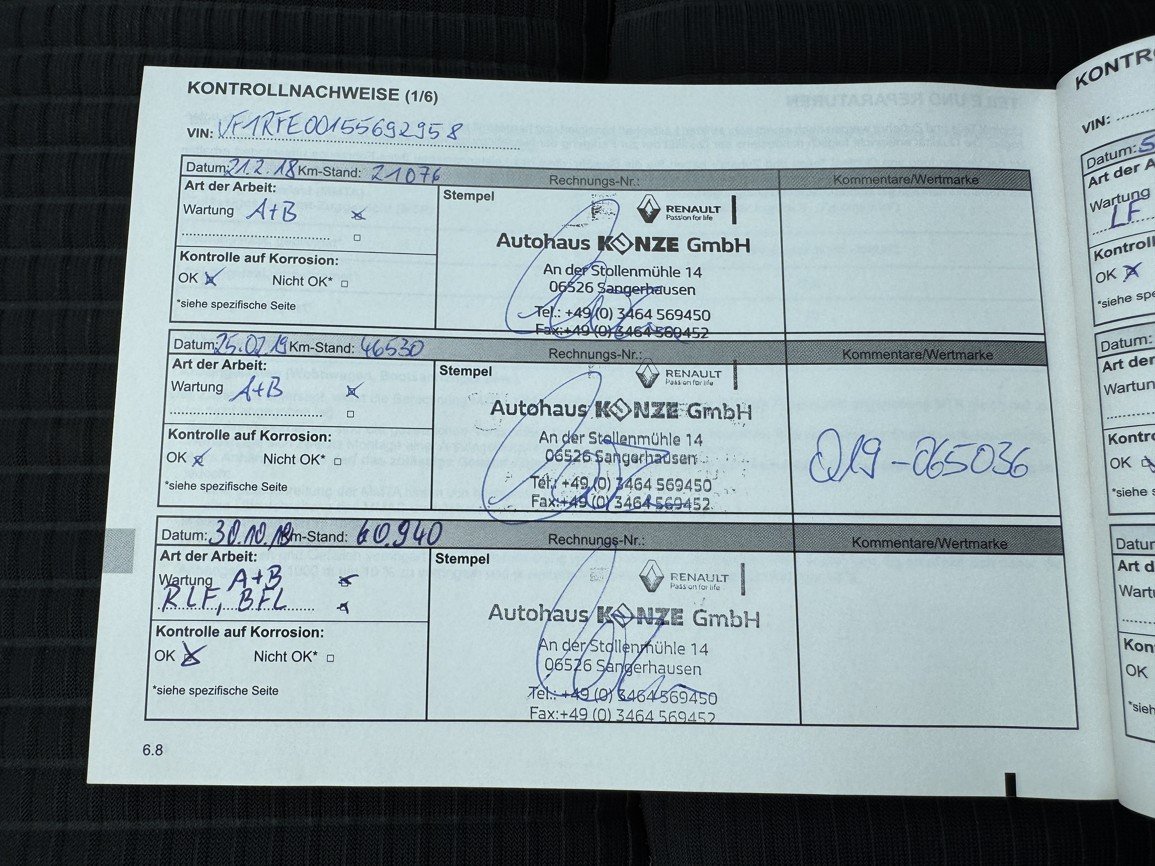 KONTROLLNACHWEISE (1/6)
VIN: VF1RFE00155692958
Datum: 21.2.18 Km-Stand: 21076 Rechnungs-Nr.: Kommentare/Wertmarke
Art der Arbeit: Stempel
RENAULT
Passion for life
Wartung A+B
Autohaus KONZE GmbH
Kontrolle auf Korrosion:
An der Stollenmühle 14
OK Nicht OK*
06526 Sangerhausen
*siehe spezifische Seite
Tel.: +49 (0) 3464 569450
Fax:+49 (0) 3464 569452
Datum: 25.02.19 Km-Stand: 46530 Rechnungs-Nr.: Kommentare/Wertmarke
Art der Arbeit: Stempel
RENAULT
Passion for life
Wartung A+B
Autohaus KONZE GmbH
Kontrolle auf Korrosion:
An der Stollenmühle 14
OK Nicht OK*
06526 Sangerhausen
Q19-065036
*siehe spezifische Seite
Tel.: +49 (0) 3464 569450
Fax:+49 (0) 3464 569452
Datum: 30.10.19 Km-Stand: 60.940 Rechnungs-Nr.: Kommentare/Wertmarke
Art der Arbeit: Stempel
RENAULT
Passion for life
Wartung A+B
RLF, BFL
Autohaus KONZE GmbH
Kontrolle auf Korrosion:
An der Stollenmühle 14
OK Nicht OK*
06526 Sangerhausen
*siehe spezifische Seite
Tel.: +49 (0) 3464 569450
Fax:+49 (0) 3464 569452
6.8
VIN:
Datum:
Wartung
LF
OK
*siehe
Datum:
OK
*siehe
OK